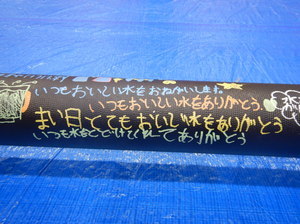 いつもおいしい水をおねがいします。
いつもおいしい水をありがとう。
まい日とてもおいしい水をありがとう
いつも水をとどけてくれてありがとう